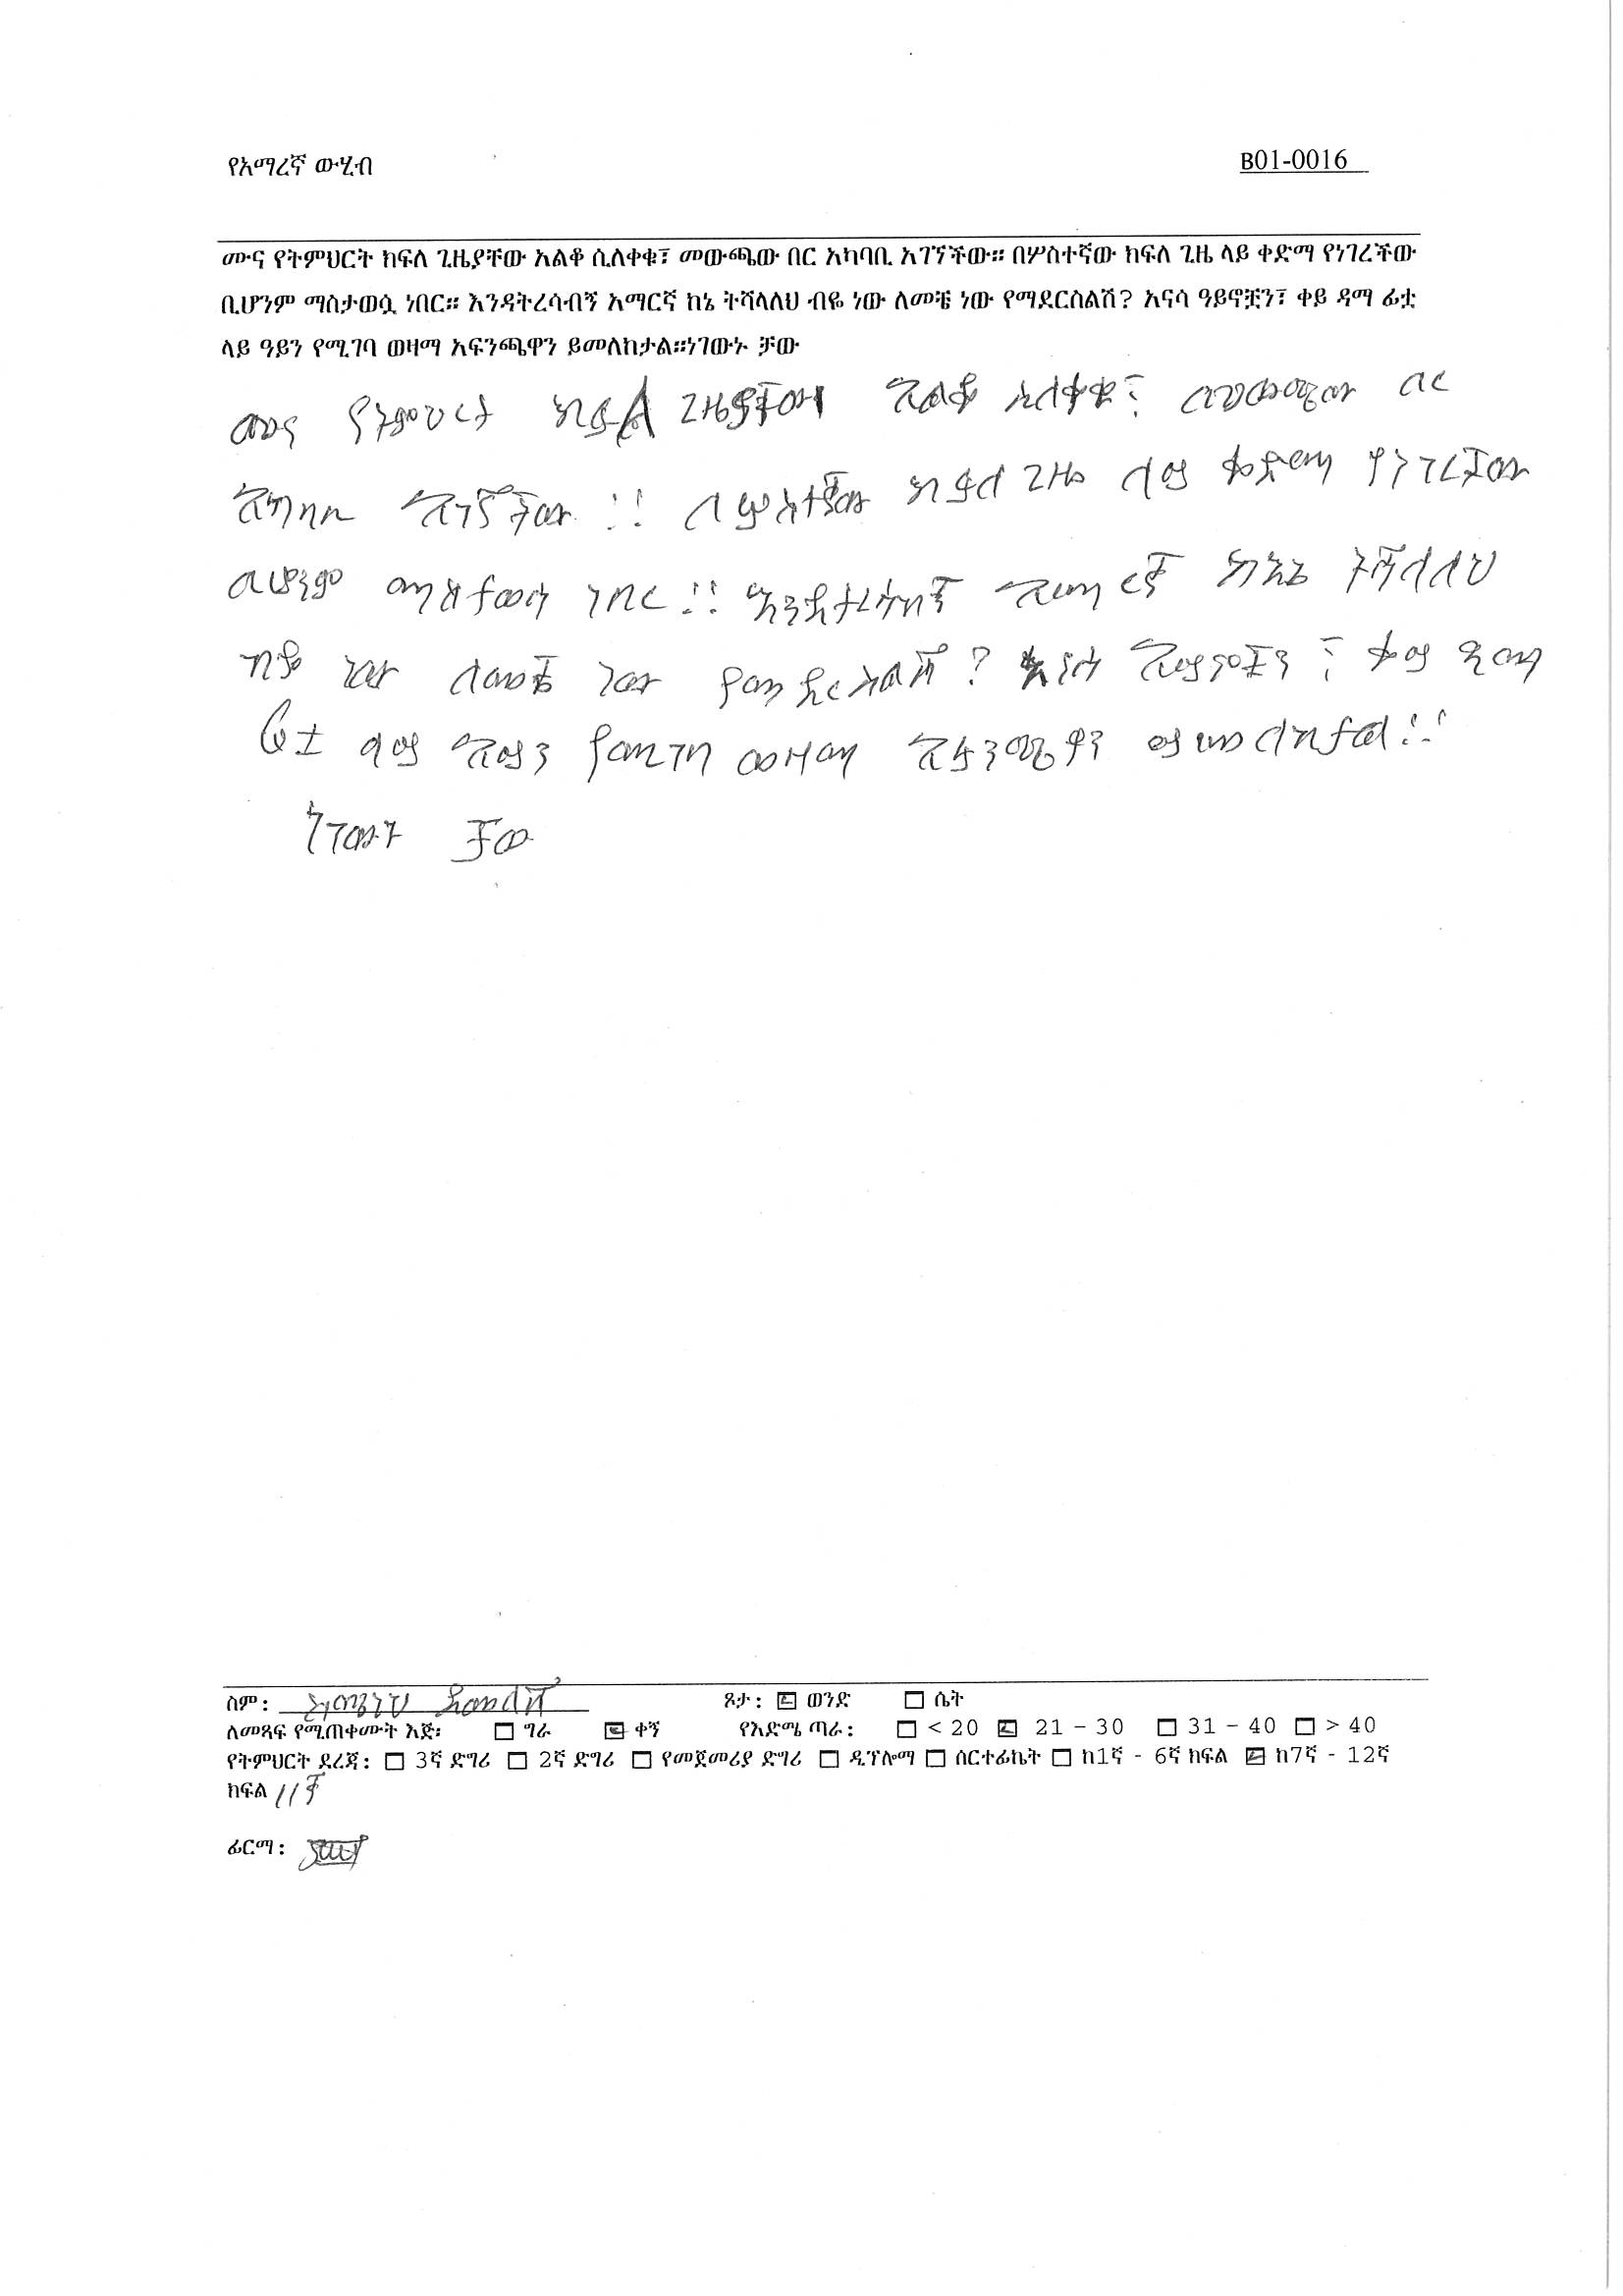 የአማረኛ ውሂብ B01-0016
ሙና የትምህርት ክፍለ ጊዜያቸው አልቆ ሲለቀቁ፣ መውጫው በር አካባቢ አገኘችው። በሦስተኛው ክፍለ ጊዜ ላይ ቀድማ የነገረችው
ቢሆንም ማስታወሷ ነበር። እንዳትረሳብኝ አማርኛ ከኔ ትሻላለህ ብዬ ነው ለመቼ ነው የማደርስልሽ? አናሳ ዓይኖቿን፣ ቀይ ዳማ ፊቷ
ላይ ዓይን የሚገባ ወዛማ አፍንጫዋን ይመለከታል።ነገውኑ ቻው
ሙና የትምህርት ክፍል ጊዜያቸው አልቆ ሲለቀቁ፣ በመውጫው በር
አካባቢ አገኛችው ።። በሦስተኛው ክፍለ ጊዜ ላይ ቀድማ የነገረችው
ቢሆንም ማስታወሷ ነበር ።። እንዳትረሳብኝ አማርኛ ከእኔ ትሻላለህ
ብዬ ነው ለመቼ ነው የማደርስልሽ? አናሳ አይኖቿን ፣ ቀይ ዳማ
ፊቷ ላይ አይን የሚገባ ወዛማ አፍንጫዋን ይመለከታል ።።
ነገውኑ ቻው
ስም: ጾታ: ወንድ ሴት
ለመጻፍ የሚጠቀሙት እጅ: ግራ ቀኝ የእድሜ ጣራ: < 20 21 – 30 31 – 40 > 40
የትምህርት ደረጃ: 3ኛ ድግሪ 2ኛ ድግሪ የመጀመሪያ ድግሪ ዲፕሎማ ሰርተፊኬት ከ1ኛ - 6ኛ ክፍል ከ7ኛ - 12ኛ
ክፍል 11ኛ
ፊርማ: